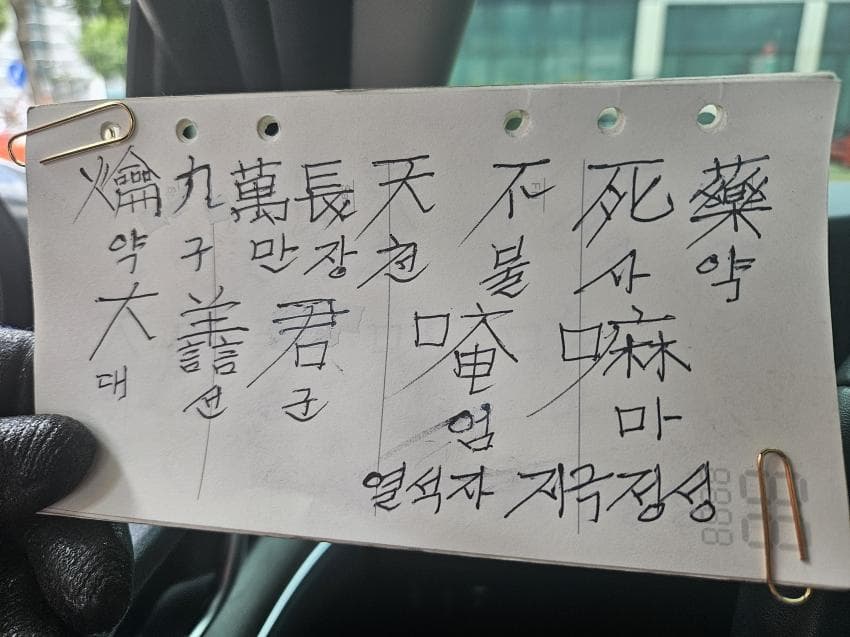 爚 九 萬 長 天 不 死 藥
약 구 만 장 천 불 사 약
大 譱 君 唵 嘛
대 선 군 엄 마
열석자 지극정성